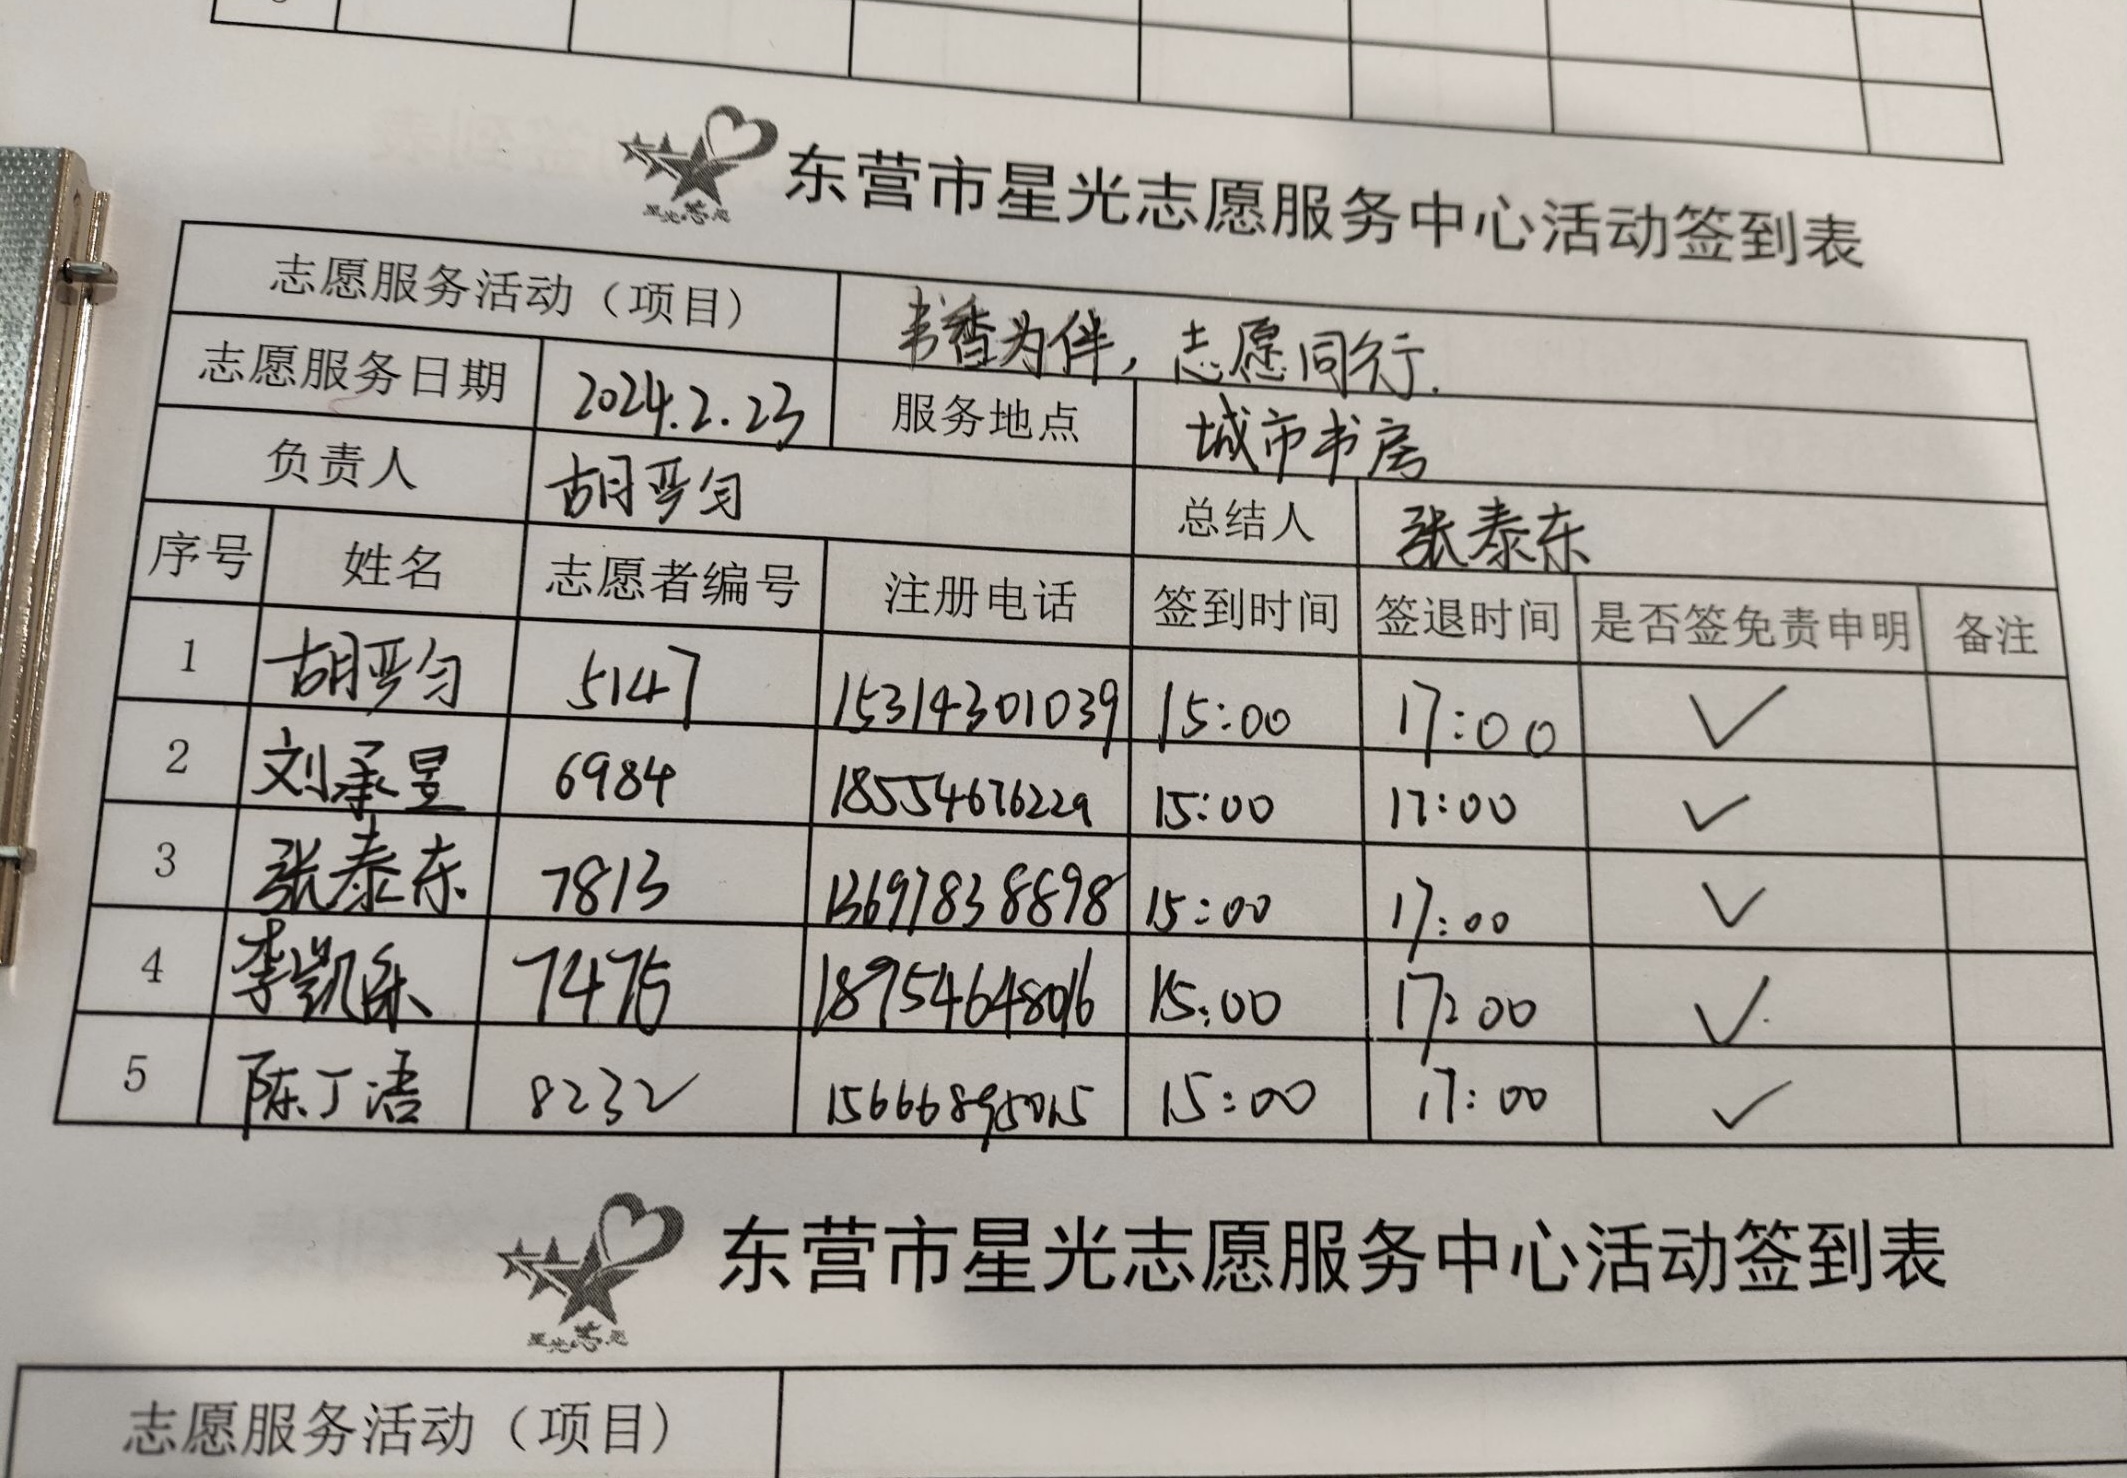 东营市星光志愿服务中心活动签到表
志愿服务活动（项目） 书香为伴，志愿同行.
志愿服务日期 2024.2.23 服务地点 城市书房
负责人 胡晋匀 总结人 张泰东
序号 姓名 志愿者编号 注册电话 签到时间 签退时间 是否签免责申明 备注
1 胡晋匀 5147 15314301039 15:00 17:00 ✓
2 刘承昱 6984 18554676229 15:00 17:00 ✓
3 张泰东 7813 13697838898 15:00 17:00 ✓
4 李凯乐 7475 18954648016 15:00 17:00 ✓
5 陈丁浯 8232 15666895015 15:00 17:00 ✓
星光志愿 东营市星光志愿服务中心活动签到表
志愿服务活动（项目）